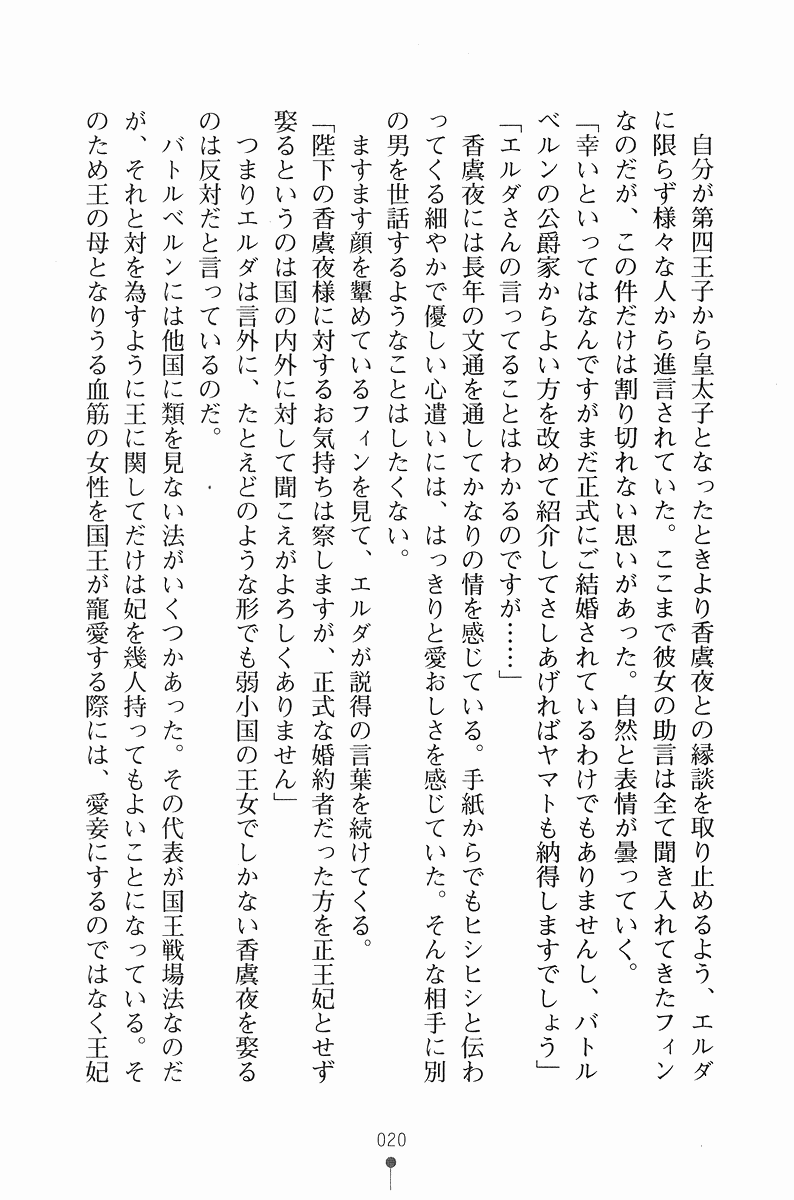 自分が第四王子から皇太子となったときより香虞夜との縁談を取り止めるよう、エルダ
に限らず様々な人から進言されていた。ここまで彼女の助言は全て聞き入れてきたフィン
なのだが、この件だけは割り切れない思いがあった。自然と表情が曇っていく。
「幸いといってはなんですがまだ正式にご結婚されているわけでもありませんし、バトル
ベルンの公爵家からよい方を改めて紹介してさしあげればヤマトも納得しますでしょう」
「エルダさんの言ってることはわかるのですが……」
香虞夜には長年の文通を通してかなりの情を感じている。手紙からでもヒシヒシと伝わ
ってくる細やかで優しい心遣いには、はっきりと愛おしさを感じていた。そんな相手に別
の男を世話するようなことはしたくない。
ますます顔を顰めているフィンを見て、エルダが説得の言葉を続けてくる。
「陛下の香虞夜様に対するお気持ちは察しますが、正式な婚約者だった方を正王妃とせず
娶るというのは国の内外に対して聞こえがよろしくありません」
つまりエルダは言外に、たとえどのような形でも弱小国の王女でしかない香虞夜を娶る
のは反対だと言っているのだ。
バトルベルンには他国に類を見ない法がいくつかあった。その代表が国王戦場法なのだ
が、それと対を為すように王に関してだけは妃を幾人持ってもよいことになっている。そ
のため王の母となりうる血筋の女性を国王が寵愛する際には、愛妾にするのではなく王妃
020